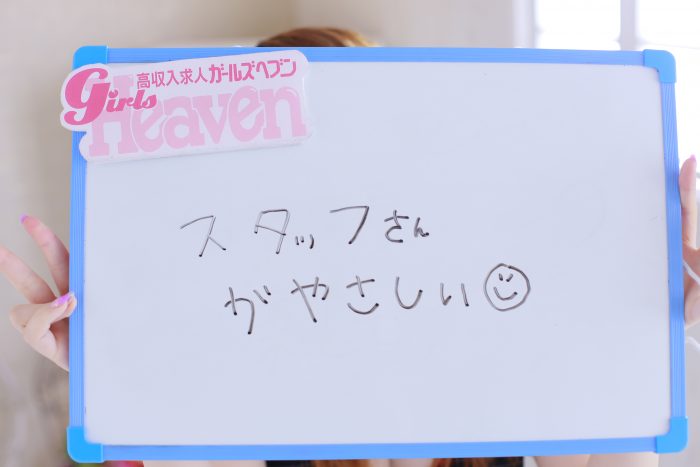 高収入求人ガールズヘブン
Girls
Heaven
スタッフさん
がやさしい